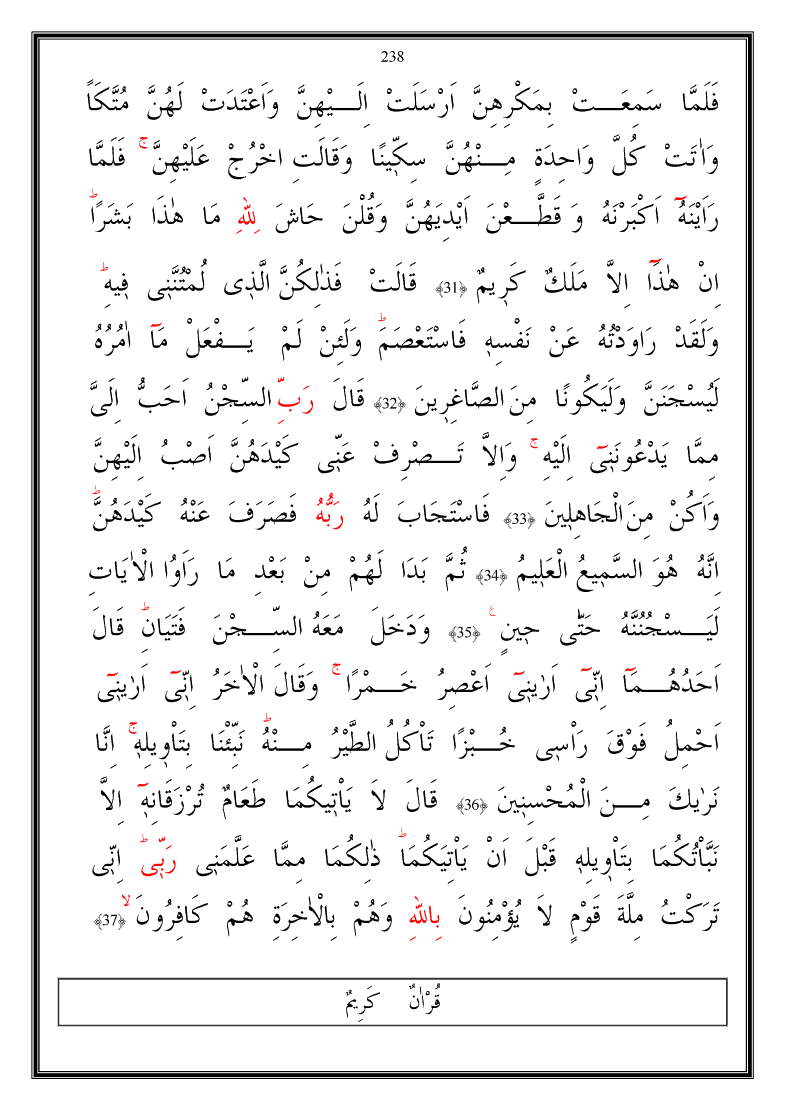 238
فَلَمَّا سَمِعَـــتْ بِمَكْرِهِنَّ اَرْسَلَتْ اِلَـــيْهِنَّ وَاَعْتَدَتْ لَهُنَّ مُتَّكَاً
وَاٰتَتْ كُلَّ وَاحِدَةٍ مِـــنْهُنَّ سِكّ۪ينًا وَقَالَتِ اخْرُجْ عَلَيْهِنَّۚ فَلَمَّا
رَاَيْنَهُٓ اَكْبَرْنَهُ وَ قَطَّـــعْنَ اَيْدِيَهُنَّ وَقُلْنَ حَاشَ لِلّٰهِ مَا هٰذَا بَشَرًاۜ
اِنْ هٰذَٓا اِلاَّ مَلَكٌ كَر۪يمٌ ﴿31﴾ قَالَتْ فَذٰلِكُنَّ الَّذ۪ى لُمْتُنَّن۪ى ف۪يهِۜ
وَلَقَدْ رَاوَدْتُهُ عَنْ نَفْسِه۪ فَاسْتَعْصَمَۜ وَلَئِنْ لَمْ يَـــفْعَلْ مَٓا اٰمُرُهُ
لَيُسْجَنَنَّ وَلَيَكُونًا مِنَ الصَّاغِر۪ينَ ﴿32﴾ قَالَ رَبِّ السِّجْنُ اَحَبُّ اِلَىَّ
مِمَّا يَدْعُونَن۪ٓى اِلَيْهِۚ وَاِلاَّ تَـــصْرِفْ عَنّ۪ى كَيْدَهُنَّ اَصْبُ اِلَيْهِنَّ
وَاَكُنْ مِنَ الْجَاهِل۪ينَ ﴿33﴾ فَاسْتَجَابَ لَهُ رَبُّهُ فَصَرَفَ عَنْهُ كَيْدَهُنَّۜ
اِنَّهُ هُوَ السَّم۪يعُ الْعَل۪يمُ ﴿34﴾ ثُمَّ بَدَا لَهُمْ مِنْ بَعْدِ مَا رَاَوُا الْاٰيَاتِ
لَيَـــسْجُنُنَّهُ حَتّٰى ح۪ينٍ ۟ ﴿35﴾ وَدَخَلَ مَعَهُ السِّـــجْنَ فَتَيَانِۜ قَالَ
اَحَدُهُـــمَٓا اِنّ۪ٓى اَرٰين۪ٓى اَعْصِرُ خَـــمْرًاۚ وَقَالَ الْاٰخَرُ اِنّ۪ٓى اَرٰين۪ٓى
اَحْمِلُ فَوْقَ رَاْس۪ى خُـــبْزًا تَاْكُلُ الطَّيْرُ مِـــنْهُۜ نَبِّئْنَا بِتَاْو۪يلِه۪ۚ اِنَّا
نَرٰيكَ مِـــنَ الْمُحْسِن۪ينَ ﴿36﴾ قَالَ لاَ يَاْت۪يكُمَا طَعَامٌ تُرْزَقَانِه۪ٓ اِلاَّ
نَبَّاْتُكُمَا بِتَاْو۪يلِه۪ قَبْلَ اَنْ يَاْتِيَكُمَاۜ ذٰلِكُمَا مِمَّا عَلَّمَن۪ى رَبّ۪ىۜ اِنّ۪ى
تَرَكْتُ مِلَّةَ قَوْمٍ لاَ يُؤْمِنُونَ بِاللّٰهِ وَهُمْ بِالْاٰخِرَةِ هُمْ كَافِرُونَۙ ﴿37﴾
قُرْاٰنٌ كَر۪يمٌ